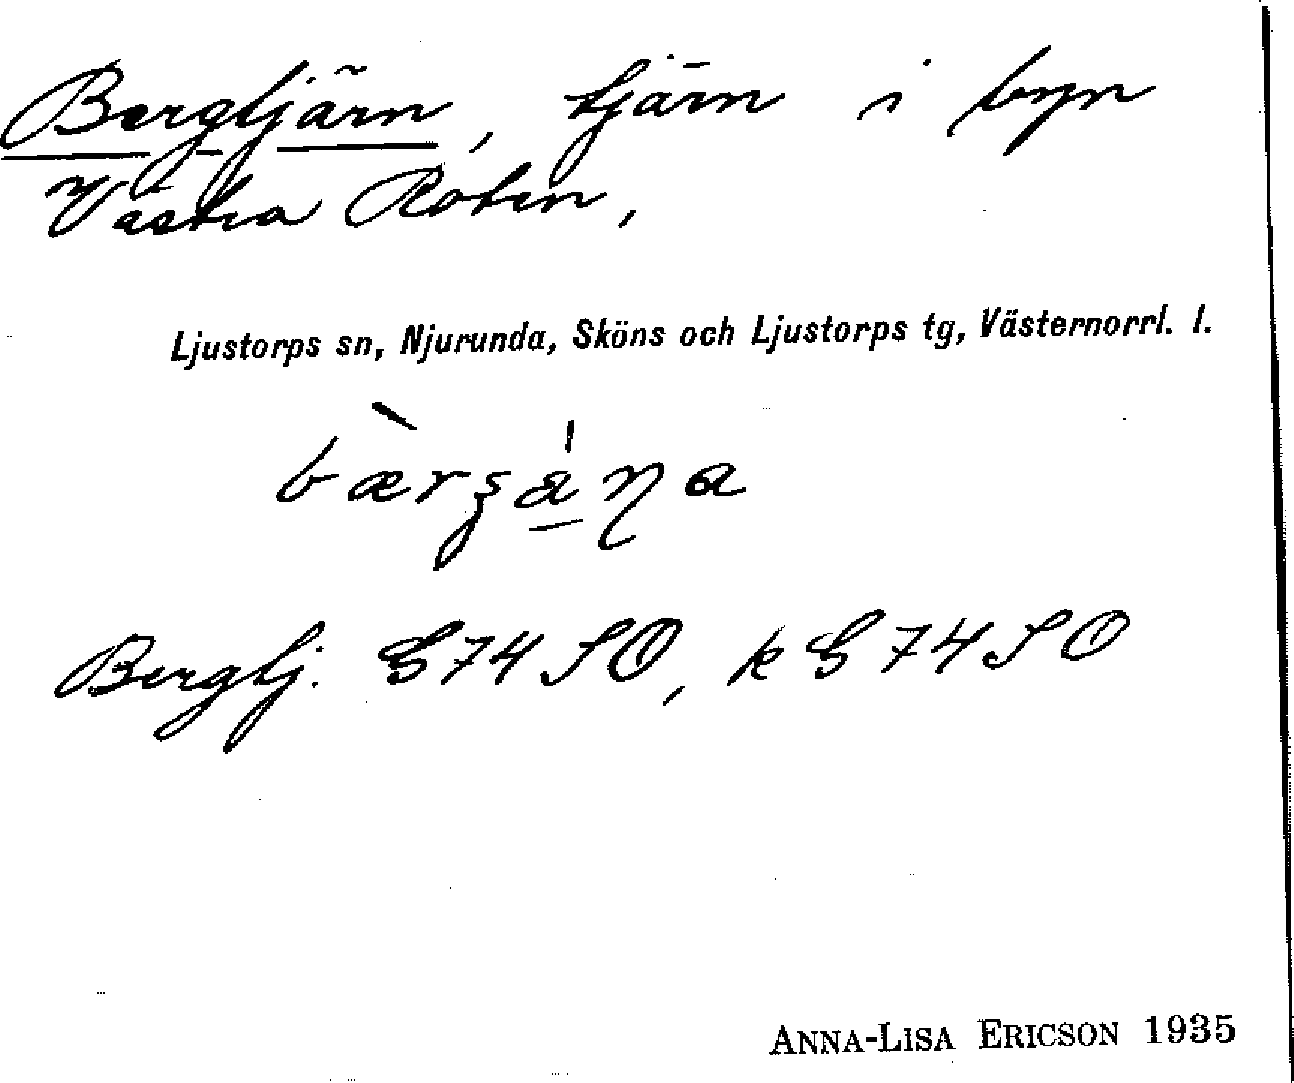 Bergtjärn, tjärn i byn
Västra Roten,
Ljustorps sn, Njurunda, Sköns och Ljustorps tg, Västernorrl. l.
Bergtj. G74SO, k G74SO
ANNA-LISA ERICSON 1935